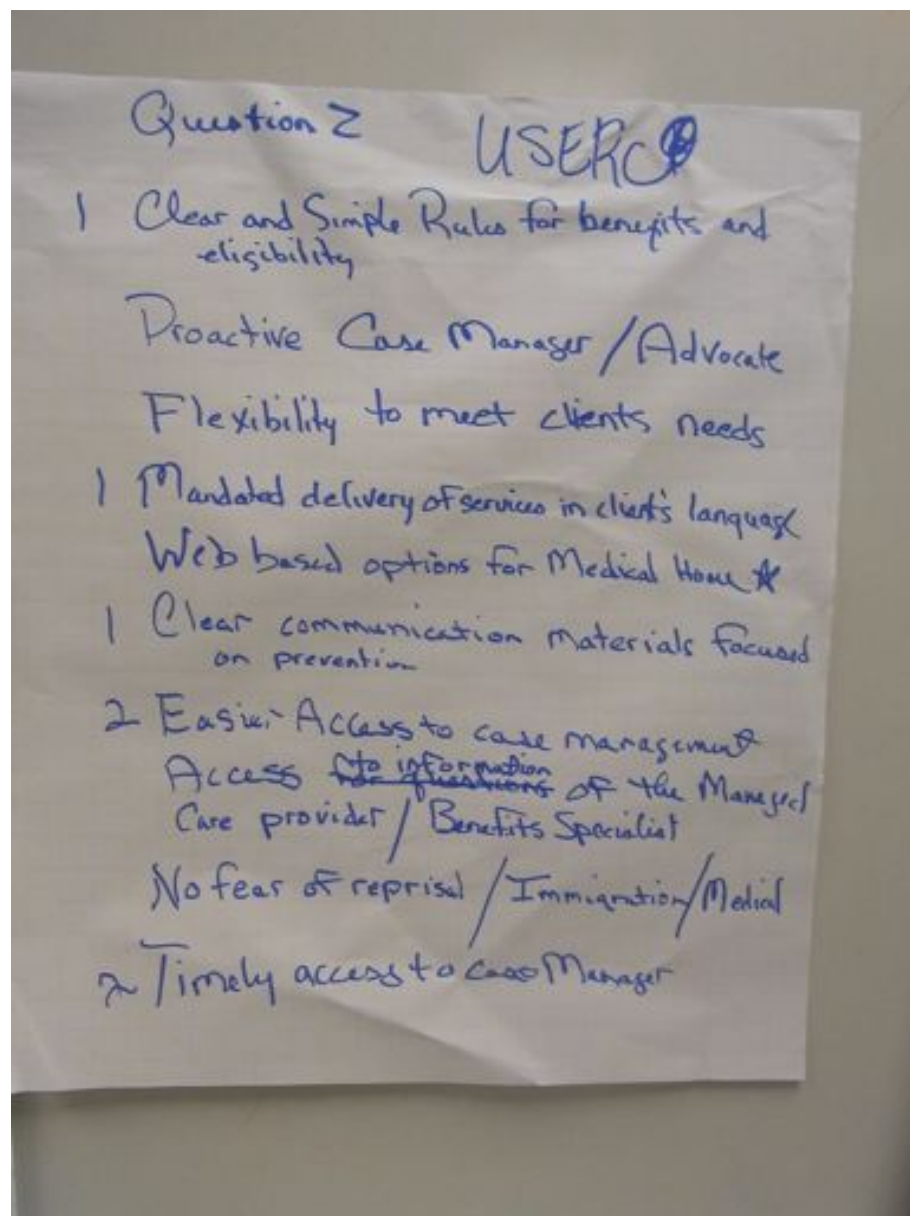 Question 2 USERC
1 Clear and Simple Rules for benefits and
eligibility
Proactive Case Manager / Advocate
Flexibility to meet clients needs
1 Mandated delivery of services in client's language
Web based options for Medical Home
1 Clear communication materials focused
on prevention
2 Easier Access to case management
Access to information of the Managed
Care provider / Benefits Specialist
No fear of reprisal / Immigration / Medical
2 Timely access to case Manager